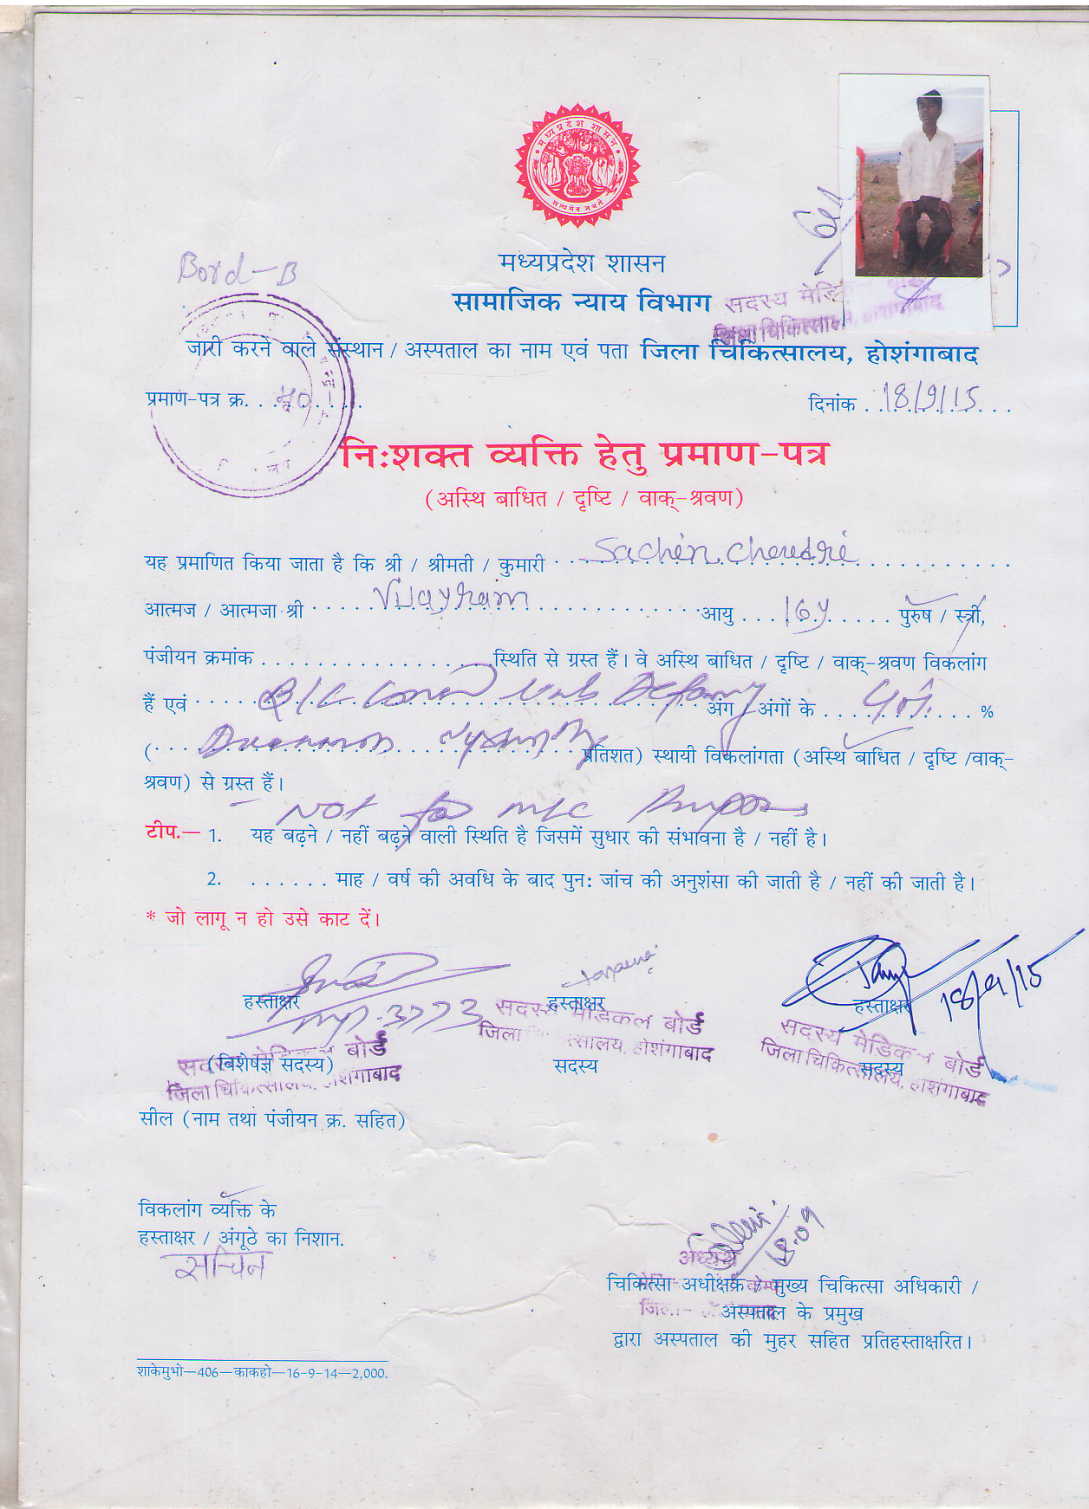 मध्यप्रदेश शासन
Bord-B
मध्यप्रदेश शासन
सामाजिक न्याय विभाग
सदस्य मेडि
जिला चिकित्साल होशंगाबाद
जारी करने वाले संस्थान / अस्पताल का नाम एवं पता जिला चिकित्सालय, होशंगाबाद
प्रमाण-पत्र क्र. . . . . . . . . .
दिनांक . . 18/9/15 . . .
निःशक्त व्यक्ति हेतु प्रमाण-पत्र
(अस्थि बाधित / दृष्टि / वाक्-श्रवण)
यह प्रमाणित किया जाता है कि श्री / श्रीमती / कुमारी . . . Sachin
आत्मज / आत्मजा श्री . . . . . Vijayram . . . . . आयु . . . 16y . . . . . पुरुष / स्त्री,
पंजीयन क्रमांक . . . . . . . . . . . . . . . . स्थिति से ग्रस्त हैं। वे अस्थि बाधित / दृष्टि / वाक्-श्रवण विकलांग
हैं एवं . . . . . अंग / अंगों के . . . . . . . . . %
(. . . . . प्रतिशत) स्थायी विकलांगता (अस्थि बाधित / दृष्टि /वाक्-
श्रवण) से ग्रस्त हैं।
Not for mlc
टीप.— 1. यह बढ़ने / नहीं बढ़ने वाली स्थिति है जिसमें सुधार की संभावना है / नहीं है।
2. . . . . . . माह / वर्ष की अवधि के बाद पुनः जांच की अनुशंसा की जाती है / नहीं की जाती है।
* जो लागू न हो उसे काट दें।
18/9/15
हस्ताक्षर हस्ताक्षर हस्ताक्षर
सदस्य मेडिकल बोर्ड
जिला चिकित्सालय, होशंगाबाद
सदस्य मेडिकल बोर्ड
जिला चिकित्सालय, होशंगाबाद
सदस्य मेडिकल बोर्ड
जिला चिकित्सालय, होशंगाबाद
(विशेषज्ञ सदस्य) सदस्य सदस्य
सील (नाम तथा पंजीयन क्र. सहित)
विकलांग व्यक्ति के
हस्ताक्षर / अंगूठे का निशान.
सचिन
18.09
अध्यक्ष
चिकित्सा अधीक्षक / मुख्य चिकित्सा अधिकारी /
अस्पताल के प्रमुख
द्वारा अस्पताल की मुहर सहित प्रतिहस्ताक्षरित।
शाकेमुभो—406—काकहो—16-9-14—2,000.